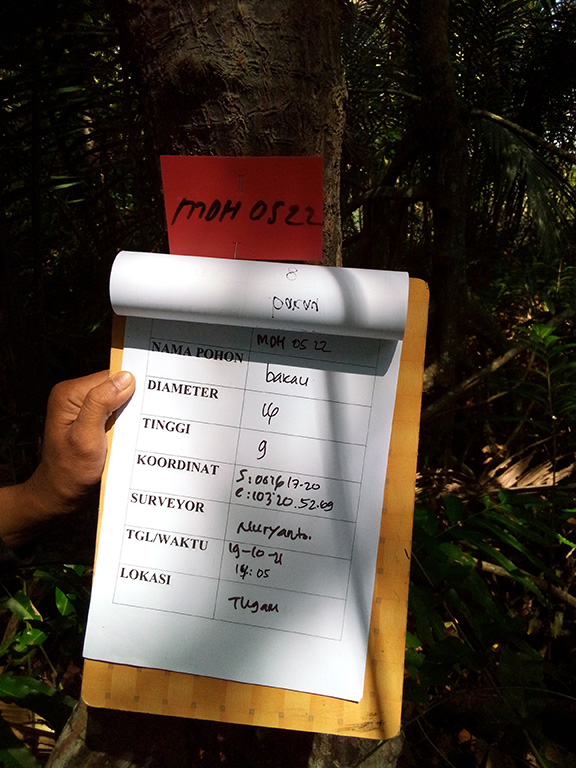 MDH 0522
MDH 0522
NAMA POHON bakau
DIAMETER 14
TINGGI 9
KOORDINAT S:00
e:103°20.52.69
SURVEYOR Nuryanto.
TGL/WAKTU 19-10-21
14:05
LOKASI